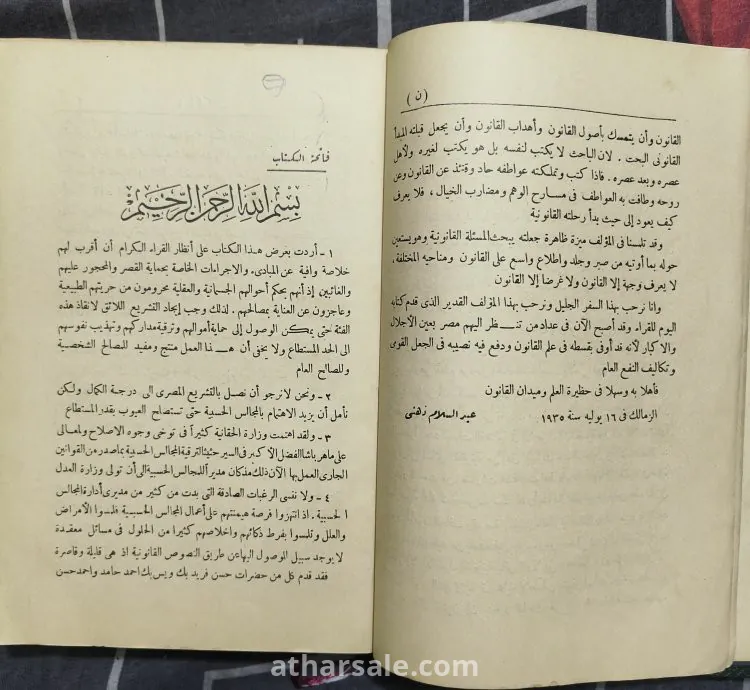 (ن)
القانون وأن يتمسك بأصول القانون وأهداب القانون وأن يجعل قبلته المبدأ
القانونى البحت . لان الباحث لا يكتب لنفسه بل هو يكتب لغيره ولأهل
عصره وبعد عصره . فاذا كتب وتملكته عواطفه حاد وقتئذ عن القانون وعن
روحه وطافت به العواطف فى مسارح الوهم ومضارب الخيال ، فلا يعرف
كيف يعود إلى حيث بدأ رحلته القانونية
وقد تلمسنا فى المؤلف ميزة ظاهرة جعلته يبحث المسئلة القانونية وهو يستعين
حوله بما أوتيه من صبر وجلد واطلاع واسع على القانون ومناحيه المختلفة .
لا يعرف وجهة إلا القانون ولا غرضا إلا القانون
وانا نرحب بهذا السفر الجليل ونرحب بهذا المؤلف القدير الذى قدم كتابه
اليوم للقراء وقد أصبح الآن فى عداد من تنظر اليهم مصر بعين الاجلال
والاكبار لأنه قد أوفى بقسطه فى علم القانون ودفع فيه نصيبه فى الجعل القومى
وتكاليف النفع العام
فأهلا به وسهلا فى حظيرة العلم وميدان القانون
الزمالك فى ١٦ يوليه سنة ١٩٣٥ عبد السلام ذهنى
فاتحة الكتاب
بسم الله الرحمن الرحيم
١ - أردت بعرض هذا الكتاب على أنظار القراء الكرام أن أقرب لهم
خلاصة وافية عن المبادىء والاجراءات الخاصة بحماية القصر والمحجور عليهم
والغائبين إذ أنهم بحكم أحوالهم الجسمانية والعقلية محرومون من حريتهم الطبيعية
وعاجزون عن العناية بمصالحهم . لذلك وجب إيجاد التشريع اللائق لانقاذ هذه
الفئة حتى يمكن الوصول إلى حماية أموالهم وترقية مداركهم وتهذيب نفوسهم
الى الحد المستطاع ولا يخفى أن هذا العمل منتج ومفيد للمصالح الشخصية
وللصالح العام
٢ - ونحن لا نرجو أن نصل بالتشريع المصرى الى درجة الكمال ولكن
نأمل أن يزيد الاهتمام بالمجالس الحسبية حتى تستصلح العيوب بقدر المستطاع
٣ - ولقد اهتمت وزارة الحقانية كثيراً فى توخى وجوه الاصلاح ولمعالى
على ماهر باشا الفضل الأكبر فى السير حثيثا لترقية المجالس الحسبية بما صدر من القوانين
الجارى العمل بها الآن ذلك مذ كان مديراً للمجالس الحسبية الى أن تولى وزارة العدل
٤ - ولا ننسى الرغبات الصادقة التى بدت من كثير من مديرى أدارة المجالس
الحسبية . اذ انتهزوا فرصة هيمنتهم على أعمال المجالس الحسبية فلمسوا الأمراض
والعلل وتلمسوا بفرط ذكائهم واخلاصهم كثيرا من الحلول فى مسائل معقدة
لا يوجد سبيل للوصول اليها عن طريق النصوص القانونية اذ هى قليلة وقاصرة
فقد قدم كل من حضرات حسن فريد بك ويس بك احمد حامد واحمد حسن
atharsale.com